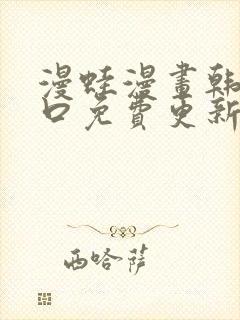 漫蛙漫畫韩
口免費更新
西哈莎